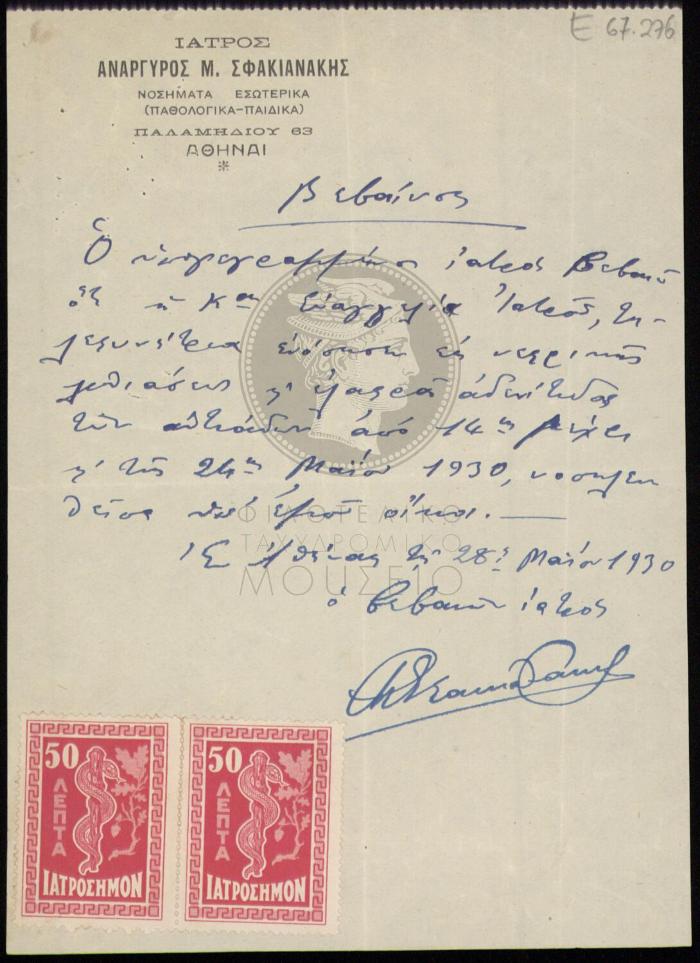 E 67.276
ΙΑΤΡΟΣ
ΑΝΑΡΓΥΡΟΣ Μ. ΣΦΑΚΙΑΝΑΚΗΣ
ΝΟΣΗΜΑΤΑ ΕΣΩΤΕΡΙΚΑ
(ΠΑΘΟΛΟΓΙΚΑ-ΠΑΙΔΙΚΑ)
ΠΑΛΑΜΗΔΙΟΥ 63
ΑΘΗΝΑΙ
Βεβαίωσις
Ὁ ὑπογεγραμμένος ἰατρὸς βεβαιῶ
ὅτι ἡ Κα Εὐαγγελία Ἰατροῦ, τη-
λεφωνήτρια ἐνόσησεν ἐκ νεφρικῆς
λιθιάσεως
τῶν ἀπὸ 14ης μέχρι
τῆς 24ης Μαΐου 1930, νοσηλευ
θεῖσα ὑπ' ἐμοῦ οἴκοι.
Ἐν Ἀθήναις τῇ 28ῃ Μαΐου 1930
ὁ βεβαιῶν ἰατρός
ΦΙΛΟΤΕΛΙΚΟ
ΤΑΧΥΔΡΟΜΙΚΟ
ΜΟΥΣΕΙΟ
50 ΛΕΠΤΑ
ΙΑΤΡΟΣΗΜΟΝ
50 ΛΕΠΤΑ
ΙΑΤΡΟΣΗΜΟΝ